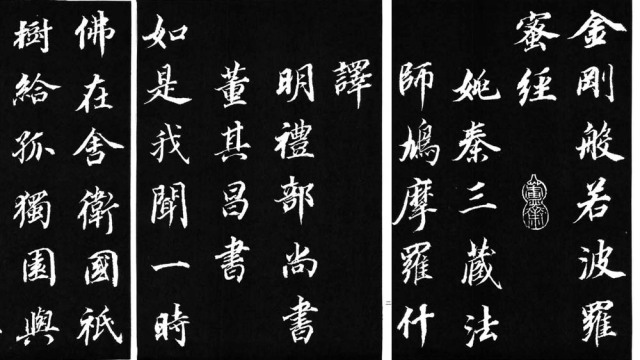 金剛般若波羅
蜜經
姚秦三藏法
師鳩摩羅什
譯
明禮部尚書
董其昌書
如是我聞一時
佛在舍衛國祇
樹給孤獨園與